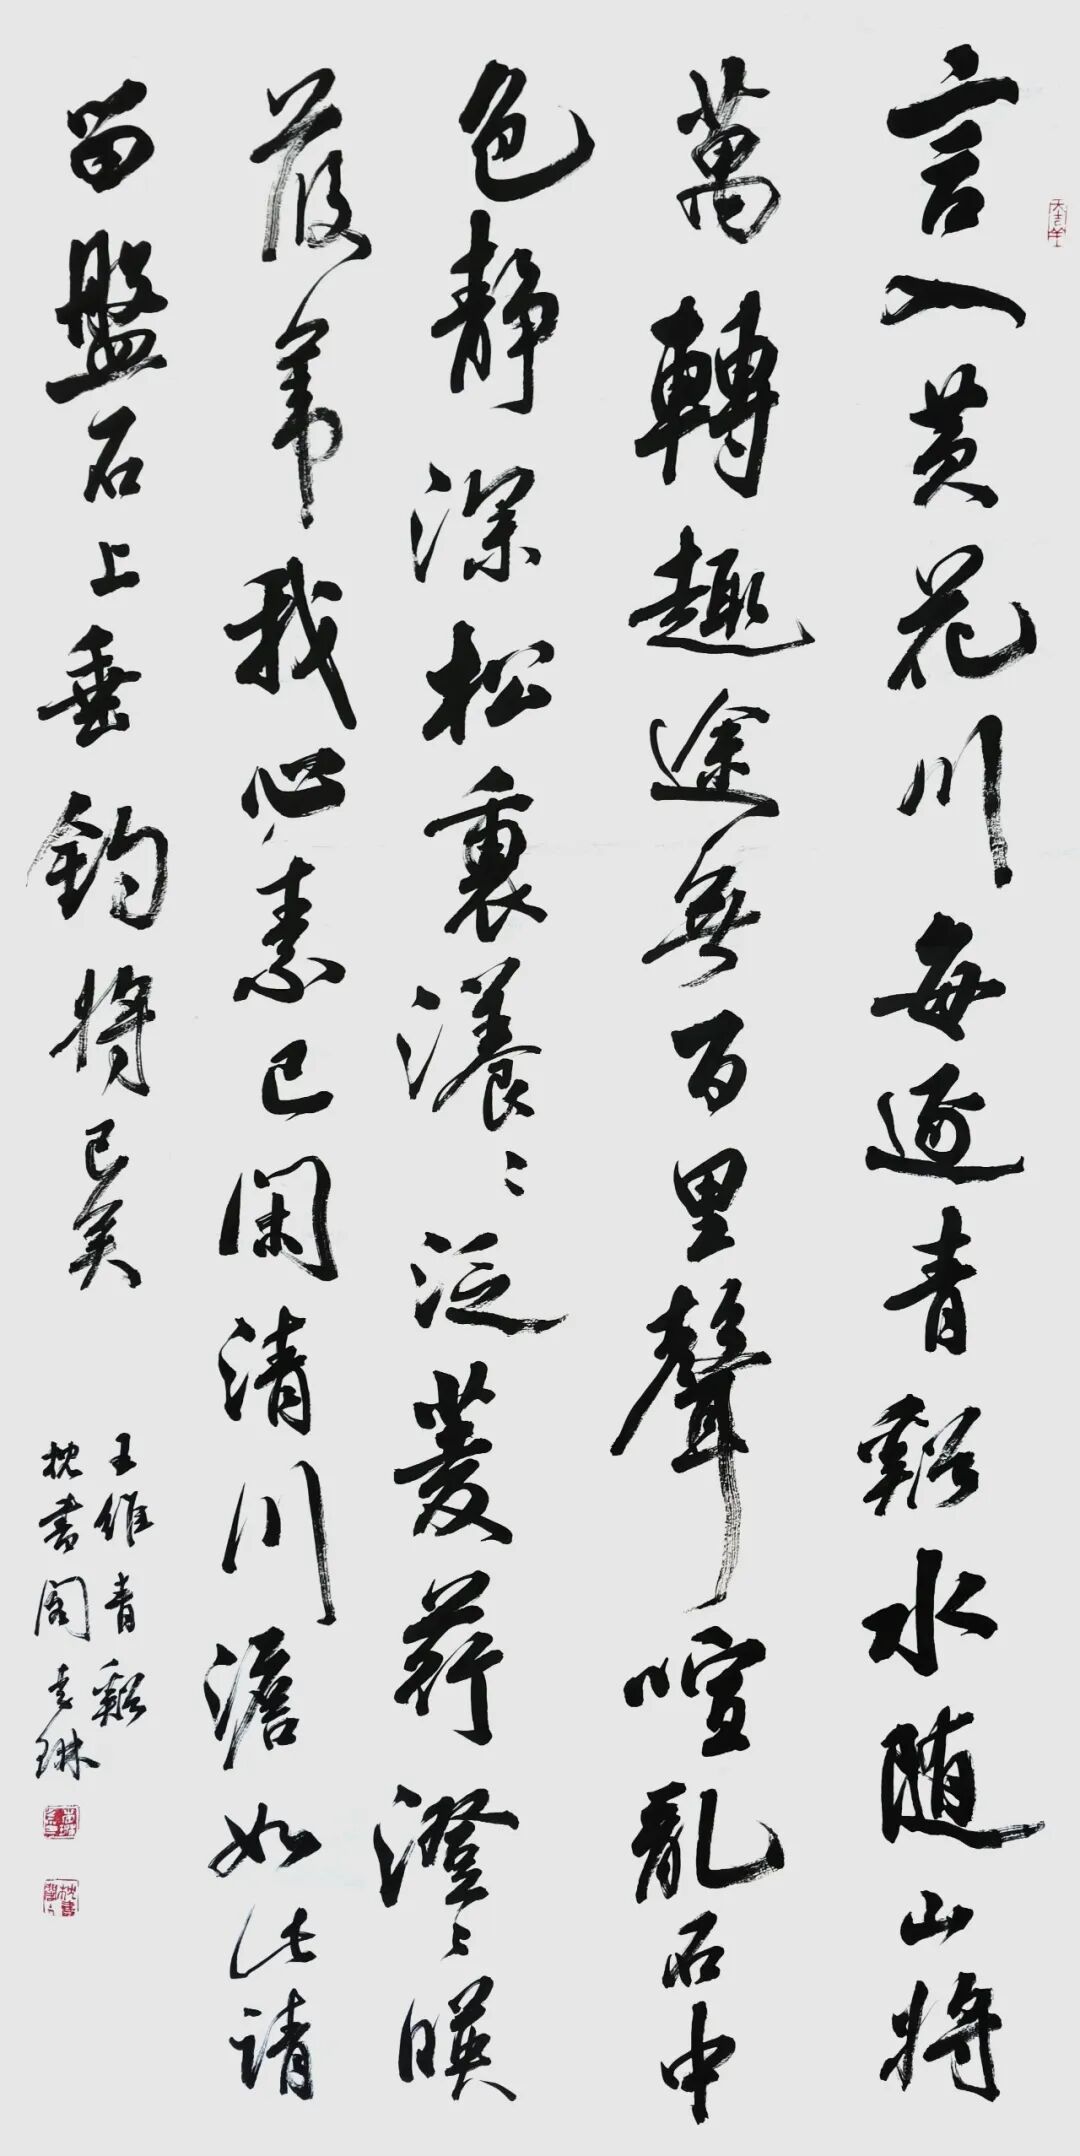 言入黄花川每逐青谿水随山将
萬轉趣途無百里聲喧亂石中
色静深松裏瀁〻泛菱荇澄〻暎
葭葦我心素已闲清川澹如此請
留盤石上垂釣将已矣
王維青谿
枕書阁琳